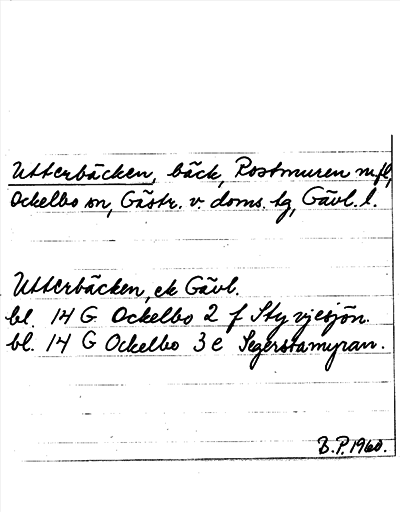 Utterbäcken, bäck, Rostmuren m fl,
Ockelbo sn, Gästr. v. doms. tg, Gävl. l.
Utterbäcken, ek Gävl.
bl. 14 G Ockelbo 2 f Styvjesjön.
bl. 14 G Ockelbo 3 e Segerstamyran.
B.P. 1960.